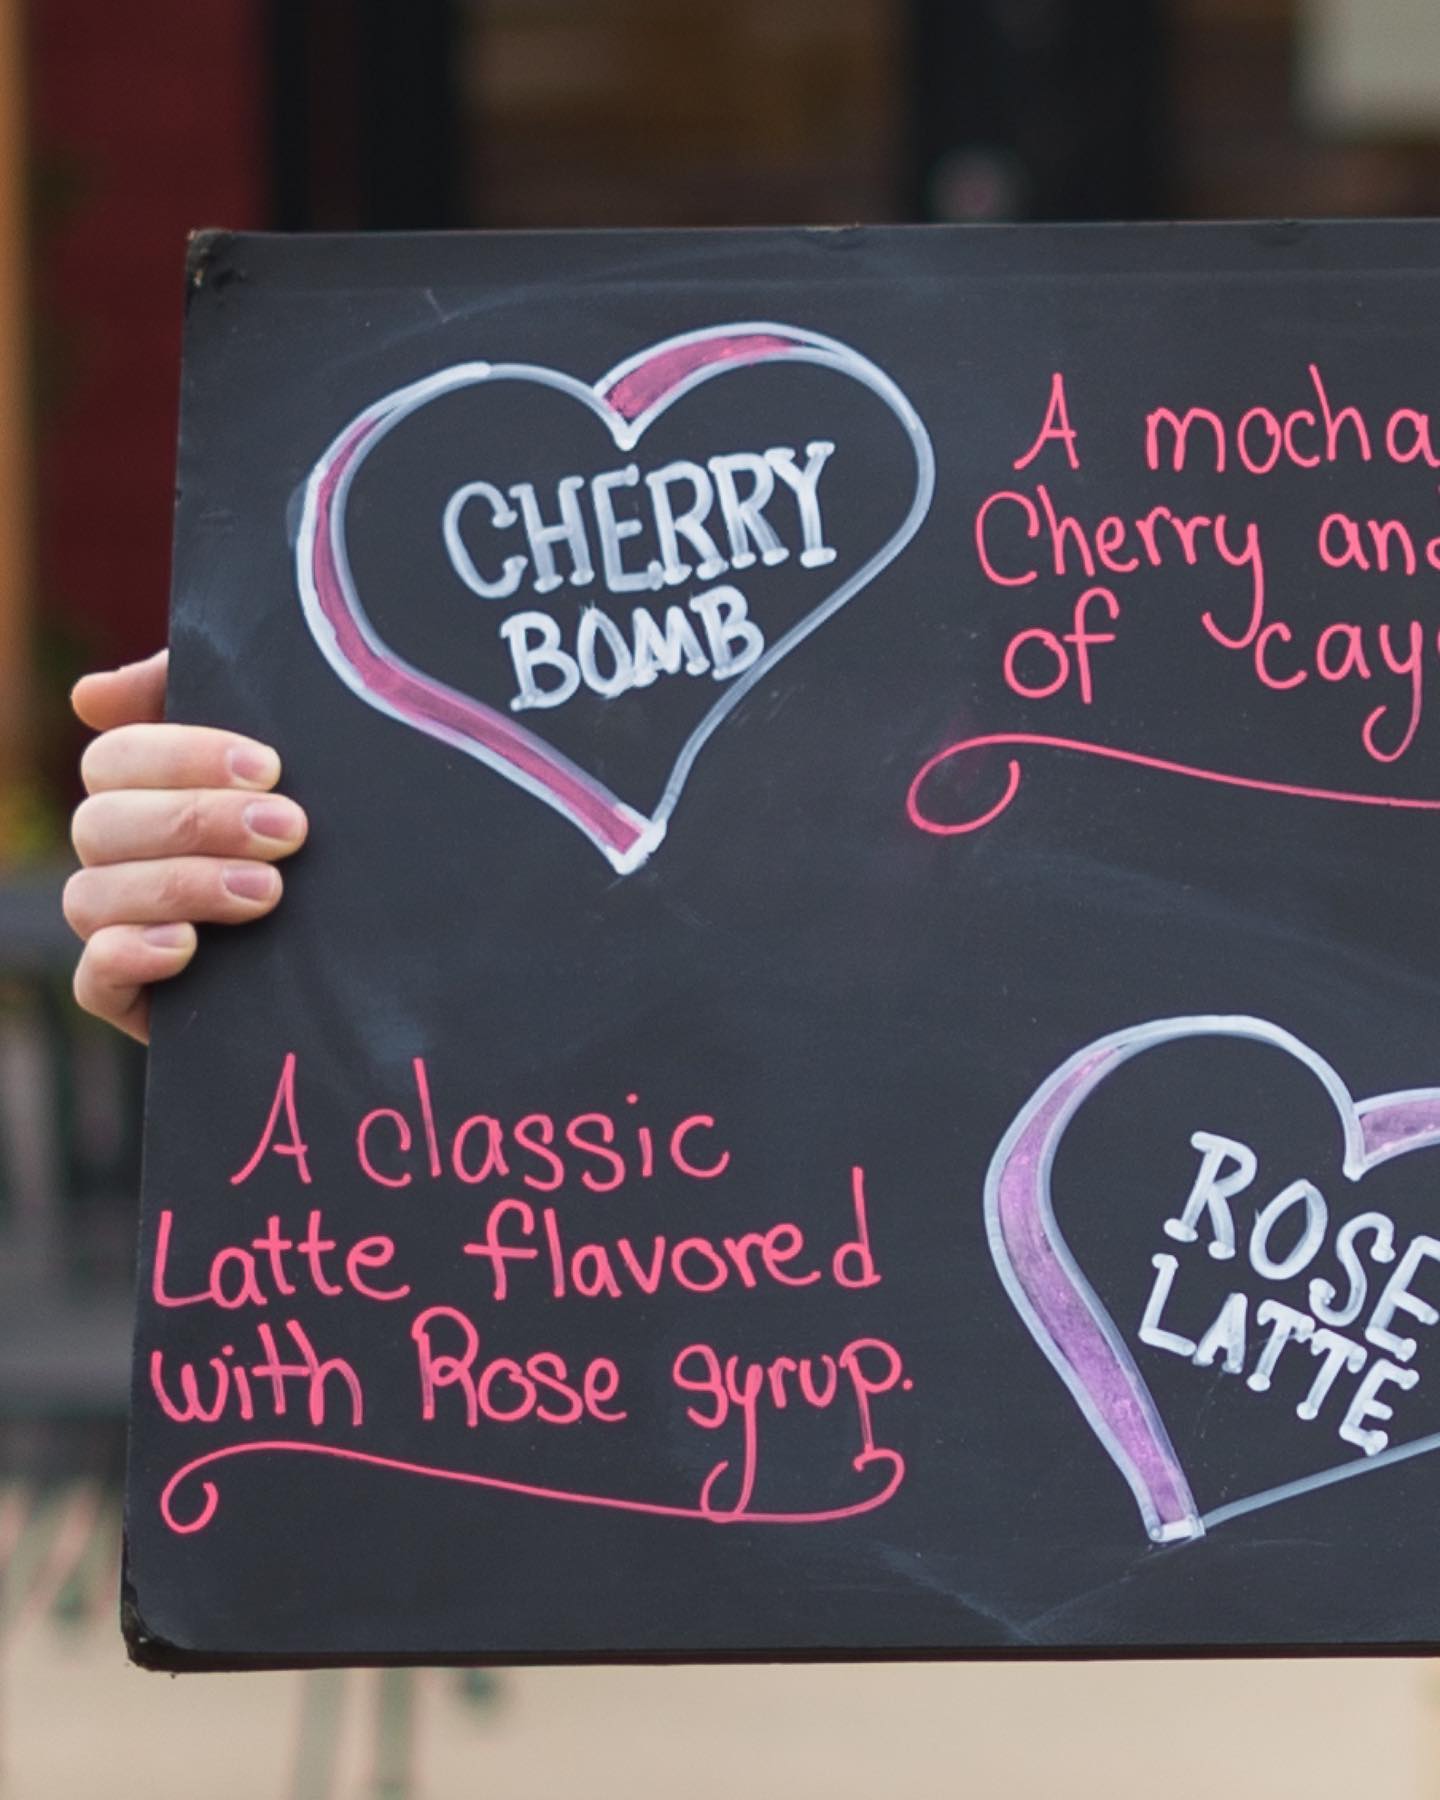 CHERRY
BOMB
A mocha
Cherry and
of cay
A classic
Latte flavored
with Rose syrup.
ROSE
LATTE